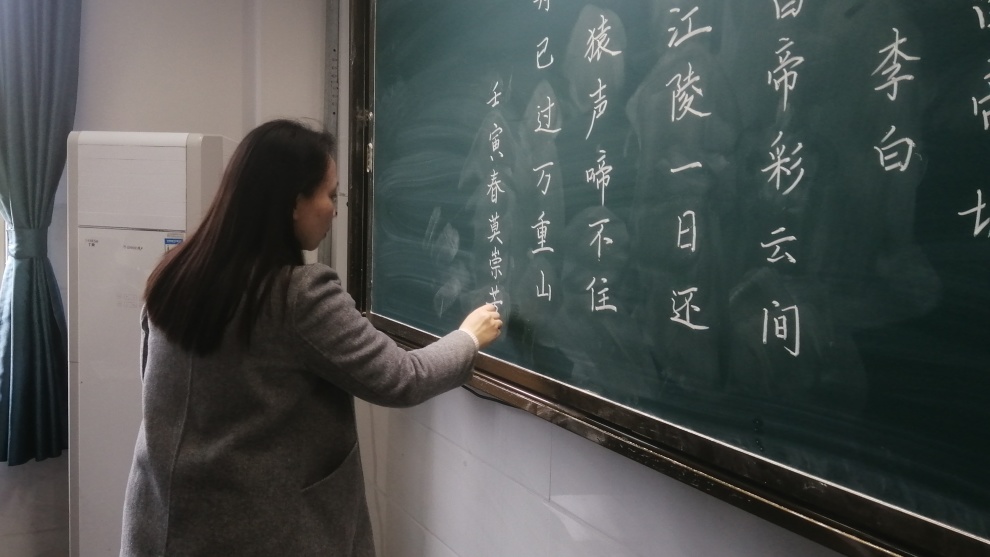 李白
白帝彩云间
江陵一日还
猿声啼不住
已过万重山
壬寅春莫崇